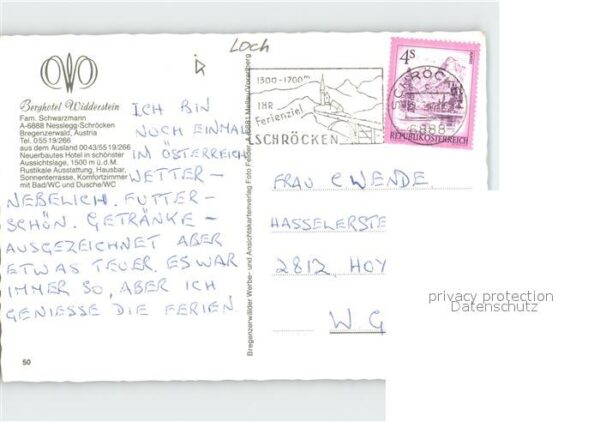 LOCH
Berghotel Widderstein
Fam. Schwarzmann
A-6888 Nesslegg-Schröcken
Bregenzerwald, Austria
Tel. 0 55 19/266
aus dem Ausland 00 43/55 19/266
Neuerbautes Hotel in schönster
Aussichtslage, 1500 m ü.d.M.
Rustikale Ausstattung, Hausbar,
Sonnenterrasse, Komfortzimmer
mit Bad/WC und Dusche/WC
ICH BIN
NOCH EINMAL
IN ÖSTERREICH
WETTER -
NEBELICH. FUTTER -
SCHÖN. GETRÄNKE -
AUSGEZEICHNET ABER
ETWAS TEUER. ES WAR
IMMER SO, ABER ICH
GENIESSE DIE FERIEN
50
Bregenzerwälder Werbe- und Ansichtskartenverlag Foto Mellau/Vorarlberg
1300-1700m
IHR
Ferienziel
SCHRÖCKEN
4S
SCHRÖCKEN
6888
REPUBLIK ÖSTERREICH
FRAU C WENDE
HASSELERSTE
2812 HOY
W G
privacy protection
Datenschutz